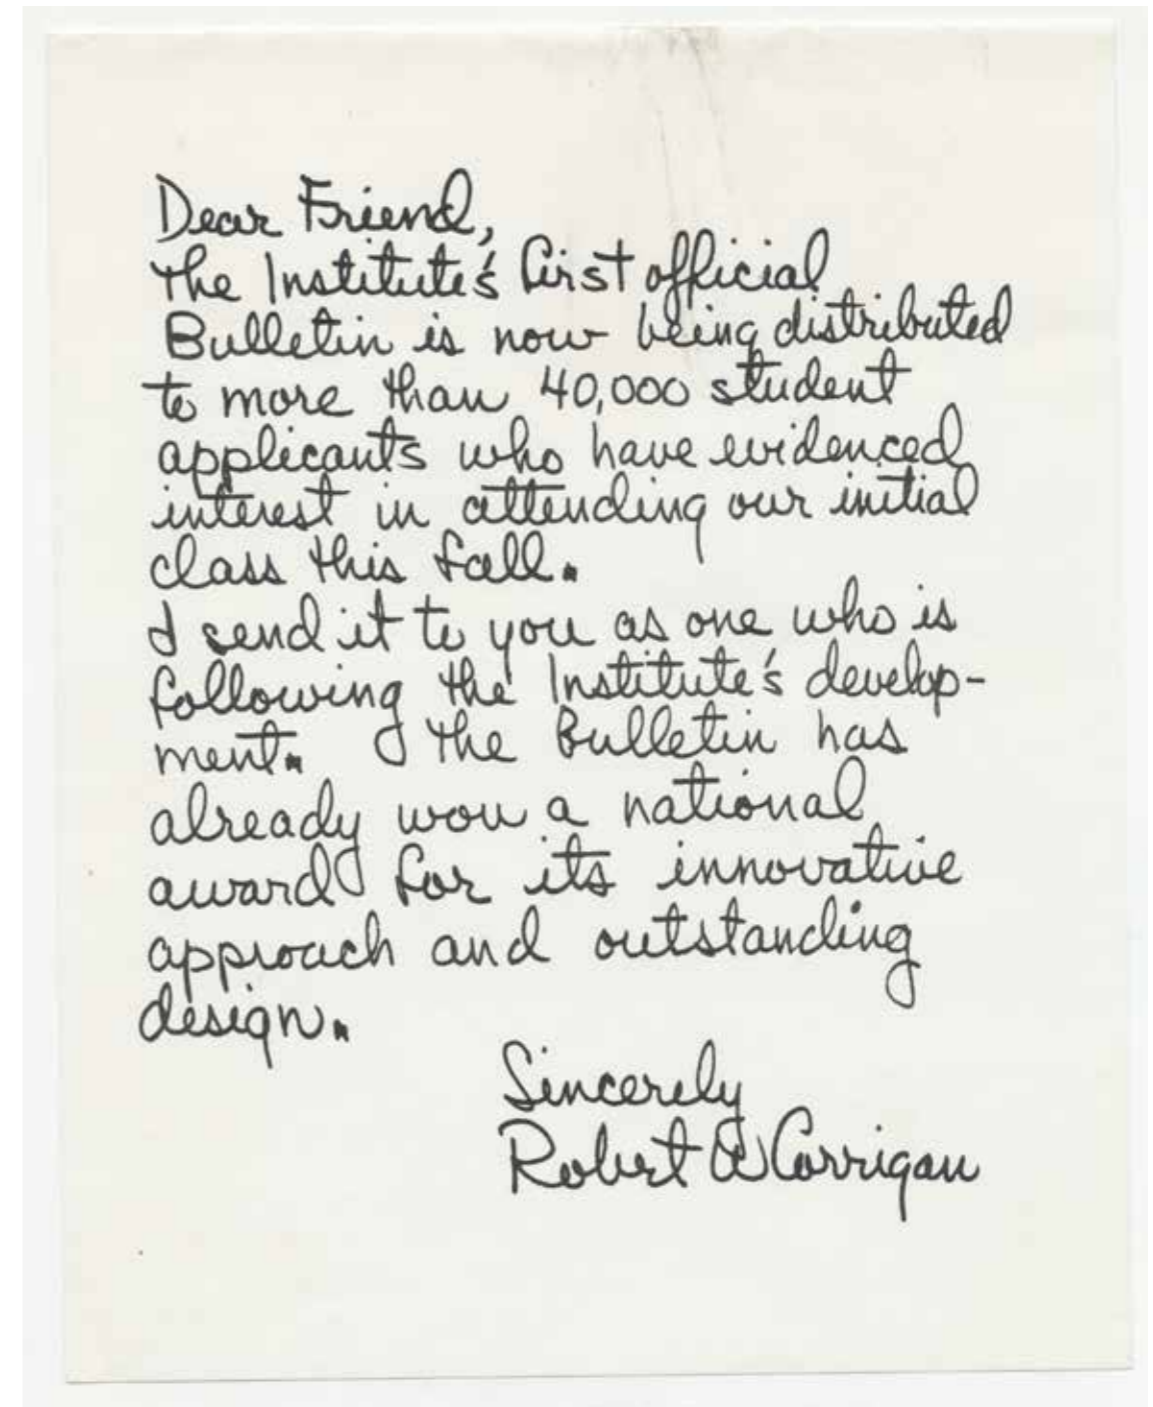 Dear Friend,
the Institute's first official
Bulletin is now being distributed
to more than 40,000 student
applicants who have evidenced
interest in attending our initial
class this fall.
I send it to you as one who is
following the Institute's develop-
ment. The Bulletin has
already won a national
award for its innovative
approach and outstanding
design.
Sincerely
Robert W Corrigan